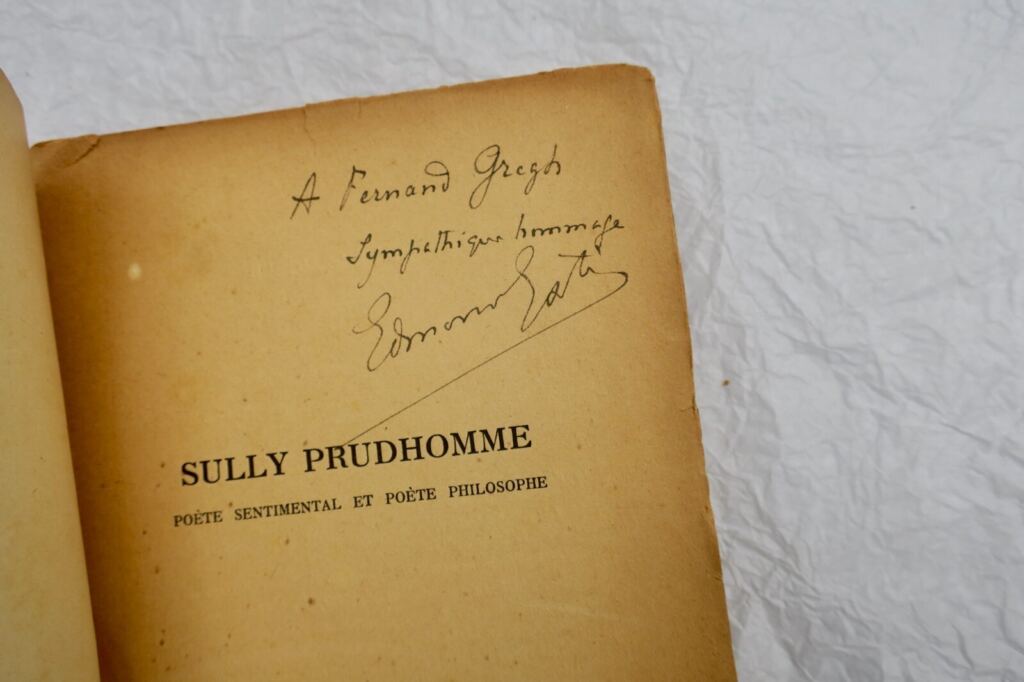 A Fernand Gregh
Sympathique hommage
Edmond Estève
SULLY PRUDHOMME
POÈTE SENTIMENTAL ET POÈTE PHILOSOPHE